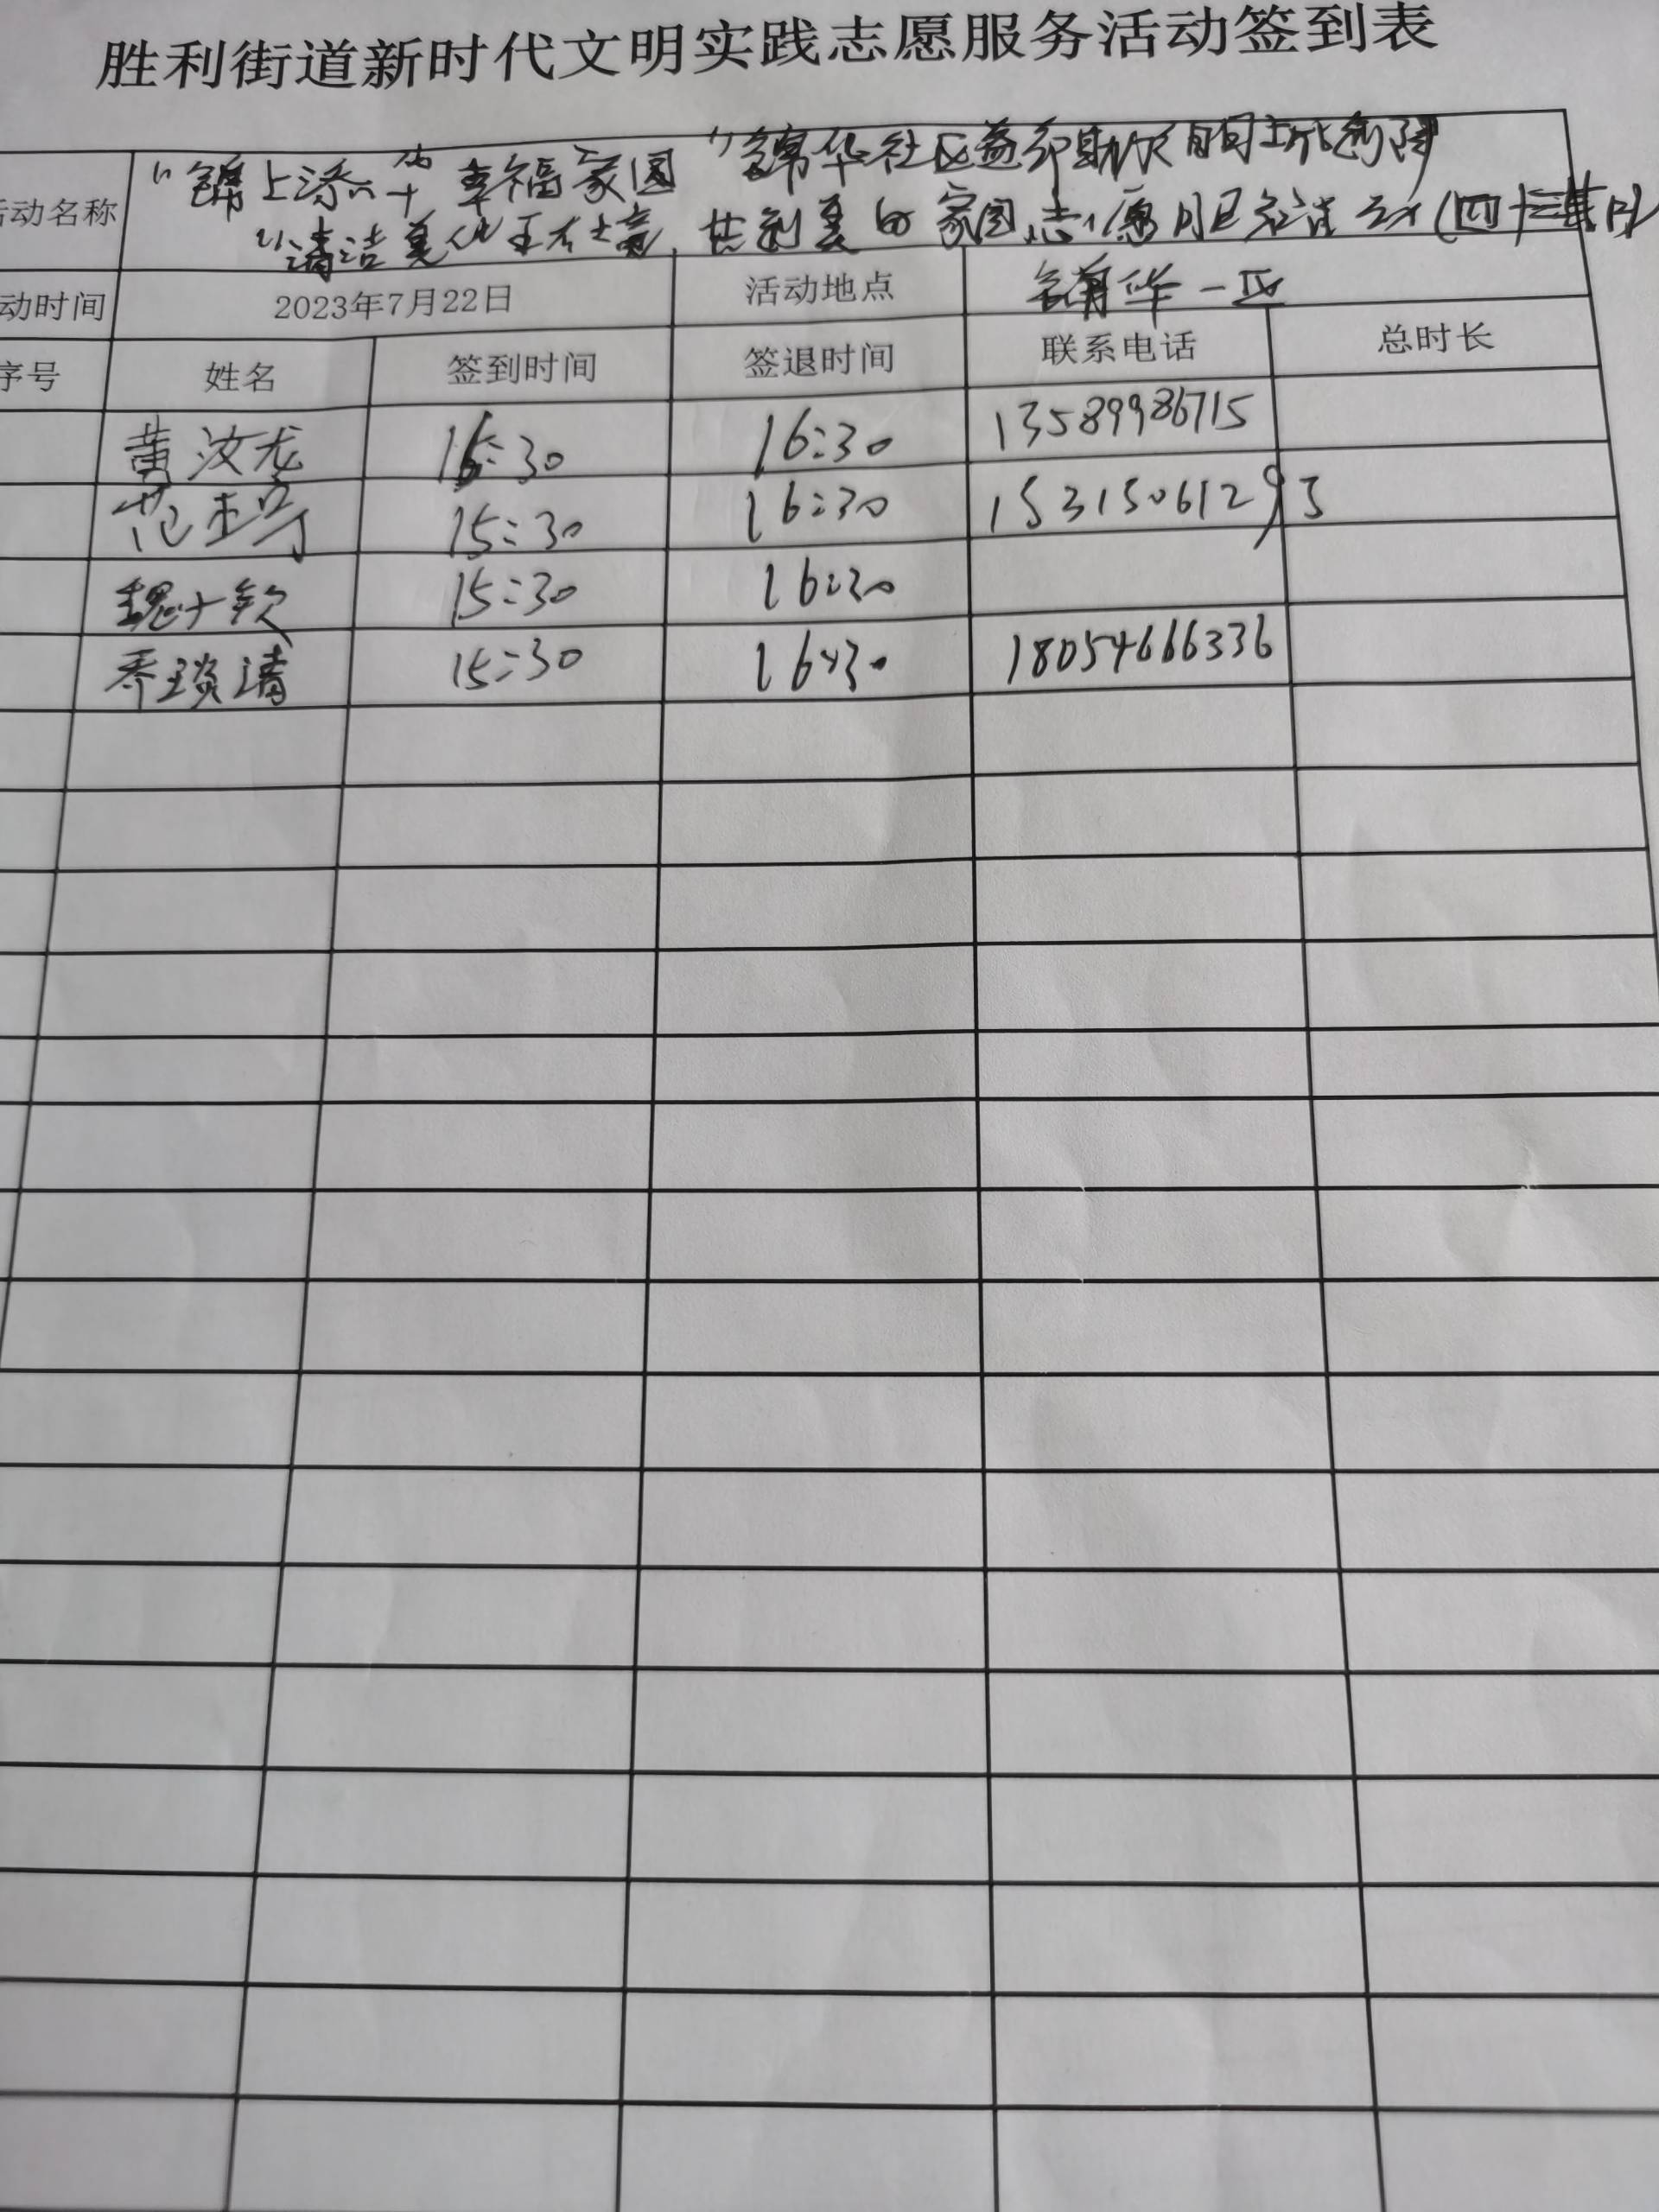 胜利街道新时代文明实践志愿服务活动签到表
活动名称
“锦上添花 幸福家园”锦华社区益邻助
“清洁美化 环境,共创美的家园志愿服务活动(四十
动时间 2023年7月22日 活动地点 锦华一区
序号 姓名 签到时间 签退时间 联系电话 总时长
黄汶龙 15:30 16:30 13589986715
范 15:30 16:30 15315061293
魏 15:30 16:30
乔琰清 15:30 16:30 18054666336